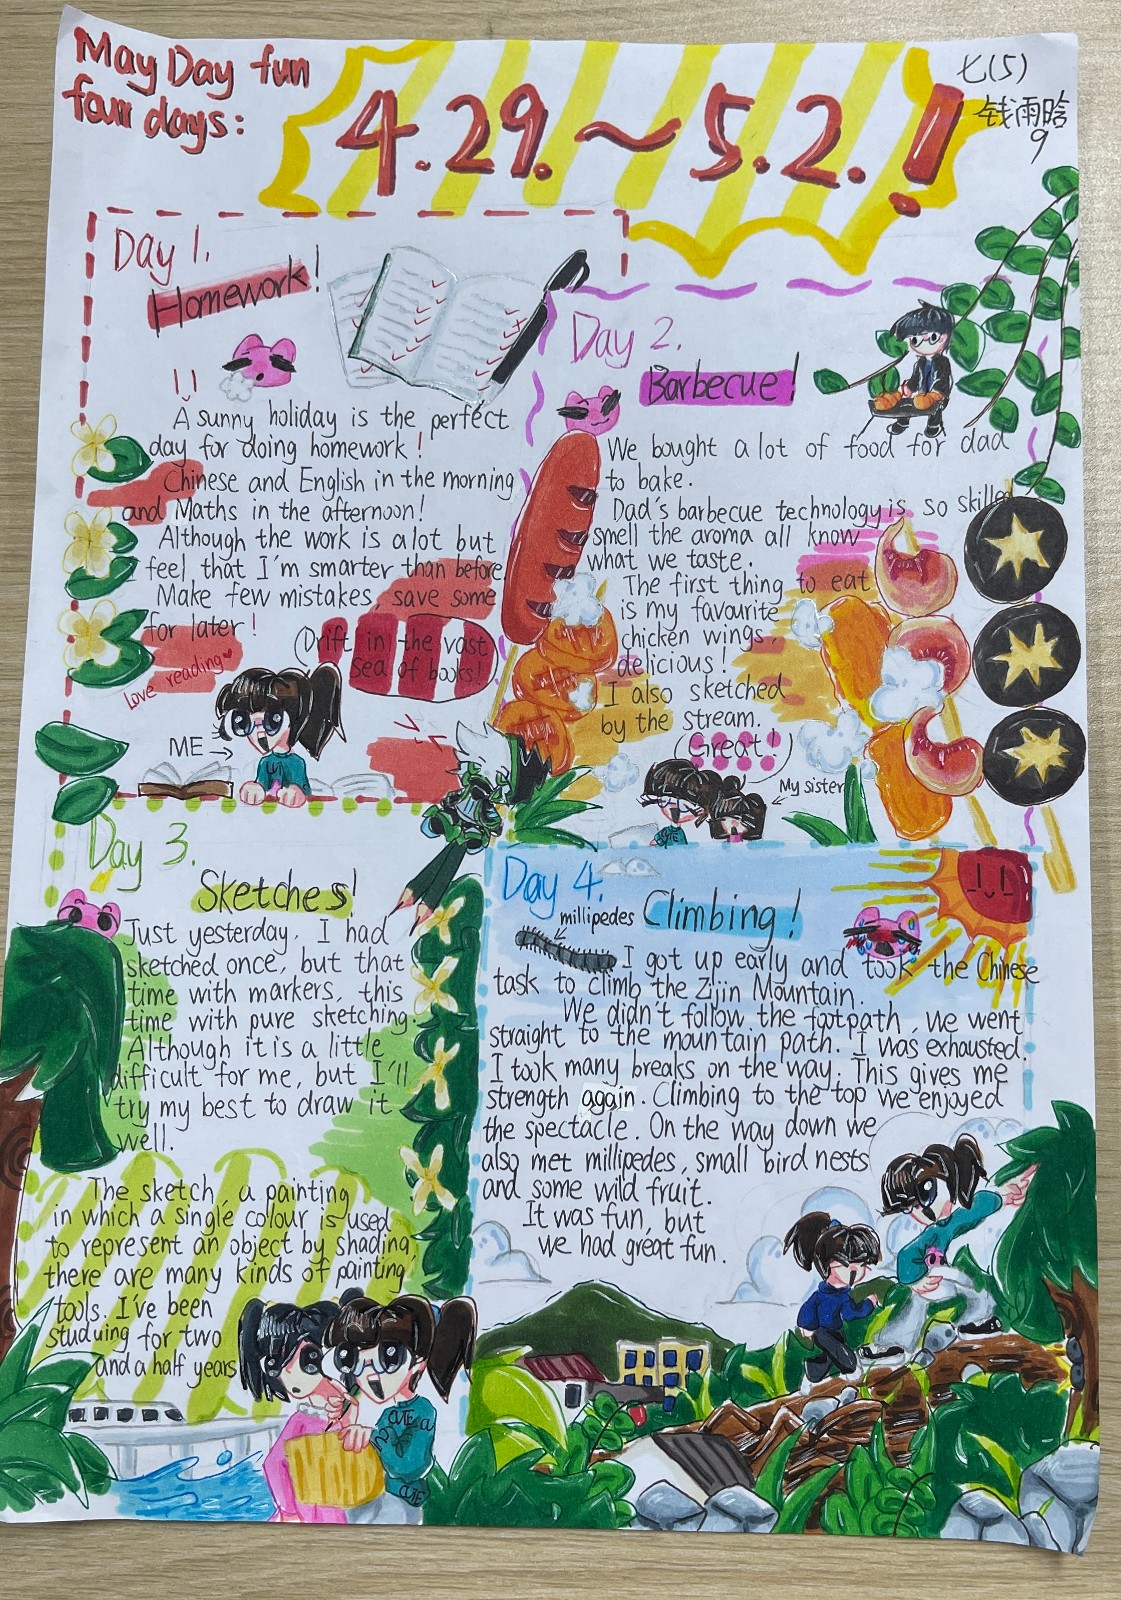 May Day fun
four days:
4.29.~5.2.!
七(5)
钱雨晗
9
Day 1.
Homework!
!!
A sunny holiday is the perfect
day for doing homework!
Chinese and English in the morning
and Maths in the afternoon!
Although the work is a lot but
I feel that I'm smarter than before.
Make few mistakes, save some
for later!
(Drift in the vast
sea of books!)
Love reading♥
ME→
Day 2.
Barbecue!
We bought a lot of food for dad
to bake.
Dad's barbecue technology is so skilled
smell the aroma all know
what we taste.
The first thing to eat
is my favourite
chicken wings,
delicious!
I also sketched
by the stream.
(Great!)
My sister
Day 3.
Sketches!
Just yesterday, I had
sketched once, but that
time with markers, this
time with pure sketching.
Although it is a little
difficult for me, but I'll
try my best to draw it
well.
The sketch, a painting
in which a single colour is used
to represent an object by shading,
there are many kinds of painting
tools. I've been
studuing for two
and a half years
CUTE
CUTE
Day 4.
Climbing!
millipedes
I got up early and took the Chinese
task to climb the Zijin Mountain.
We didn't follow the fotpath, we went
straight to the mountain path. I was exhausted.
I took many breaks on the way. This gives me
strength again. Climbing to the top we enjoyed
the spectacle. On the way down we
also met millipedes, small bird nests
and some wild fruit.
It was fun, but
we had great fun.